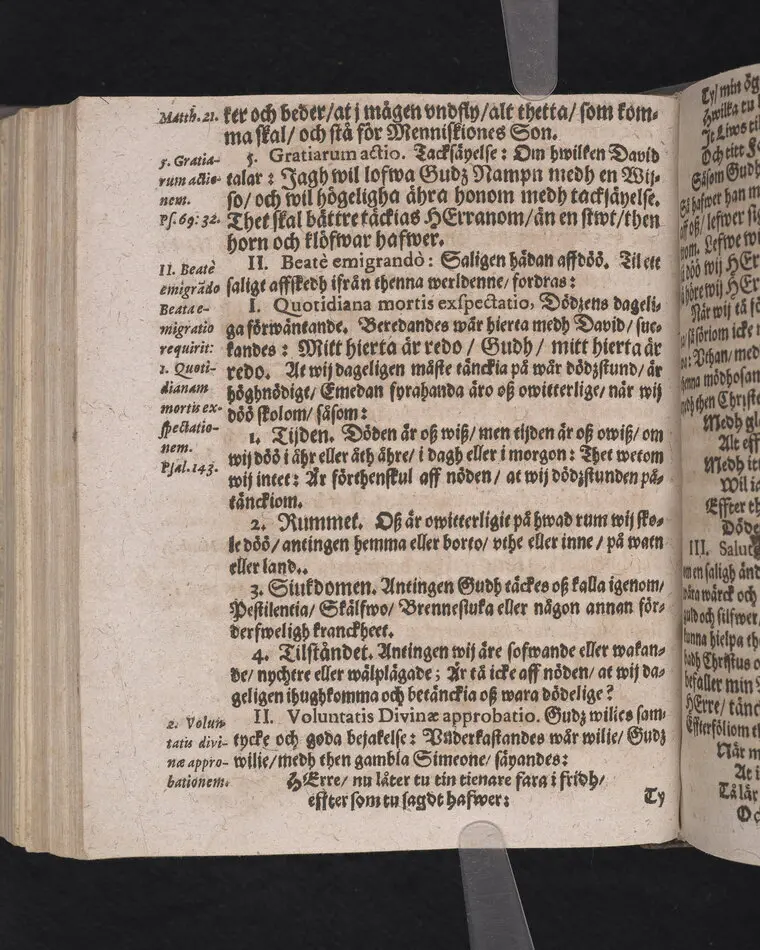 Matth. 21.
ker och beder/ at j mågen vndfly/ alt thetta/ som kom-
ma skal/ och stå för Menniskiones Son.
5. Gratia-
rum actio-
nem.
Ps. 69: 32.
5. Gratiarum actio. Tacksäyelse: Om hwilken David
talar: Jagh wil lofwa Gudz Nampn medh en Wij-
so/ och wil högeligha ähra honom medh tacksäyelse.
Thet skal bättre täckias HErranom/ än en stwt/ then
horn och klöfwar hafwer.
II. Beatè
emigrãdo
Beata e-
migratio
requirit:
1. Quoti-
dianam
mortis ex-
spectatio-
nem.
Psal. 143.
II. Beatè emigrandò: Saligen hädan affdöö. Til ett
saligt affskedh ifrån thenna werldenne/ fordras:
I. Quotidiana mortis exspectatio, Dödzens dageli-
ga förwäntande. Beredandes wår hierta medh David/ suc-
kandes: Mitt hierta är redo/ Gudh/ mitt hierta är
redo. At wij dageligen måste tänckia på wår dödzstund/ är
höghnödigt/ Emedan fyrahanda äro oß owitterlige/ när wij
döö skolom/ såsom:
1. Tijden. Döden är oß wiß/ men tijden är oß owiß/ om
wij döö i åhr eller åth åhre/ i dagh eller i morgon: Thet wetom
wij intet: Är förthenskul aff nöden/ at wij dödzstunden på-
tänckiom.
2. Rummet. Oß är owitterligit på hwad rum wij sko-
le döö/ antingen hemma eller borto/ vthe eller inne/ på watn
eller land..
3. Siukdomen. Antingen Gudh täckes oß kalla igenom/
Pestilentia/ Skälfwo/ Brennesiuka eller någon annan för-
derfweligh kranckheet.
4. Tilståndet. Antingen wij äre sofwande eller wakan-
de/ nychtre eller wälplägade; Är tå icke aff nöden/ at wij da-
geligen ihughkomma och betänckia oß wara dödelige?
2. Volun-
tatis divi-
næ appro-
bationem.
II. Voluntatis Divinæ approbatio. Gudz wilies sam-
tycke och goda bejakelse: Vnderkastandes wår wilie/ Gudz
wilie/ medh then gambla Simeone/ säyandes:
HErre/ nu låter tu tin tienare fara i fridh/
effter som tu sagdt hafwer:
Ty
Ty/ min ög
Hwilka tu
Jt Liws til
Och titt
Såsom Gudh
hafwer han
oß/ lefwer
Lefwe wi
döö wij HEr
höre wij HEr
När wij tå
såsöriom icke
Vthan/ med
mödhosan
then Christe
Medh
Alt eff
Medh
Wil
Effter th
Döde
III. Salut
en saligh änd
wårck och
och silfwer
kunna hielpa
Christus
befaller min
HErre/ tänc
Effterföliom
När m
At i
Tå lär